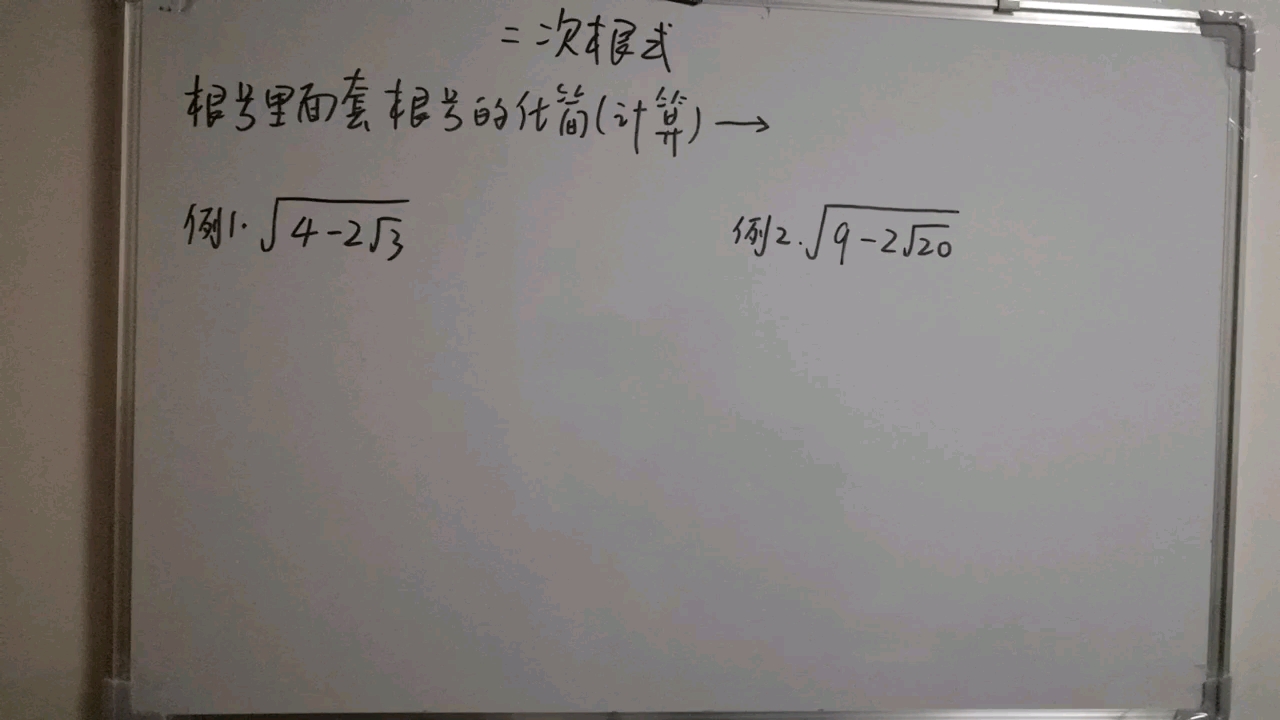 二次根式
根号里面套根号的化简(计算)→
例1. √(4-2√3)
例2. √(9-2√20)